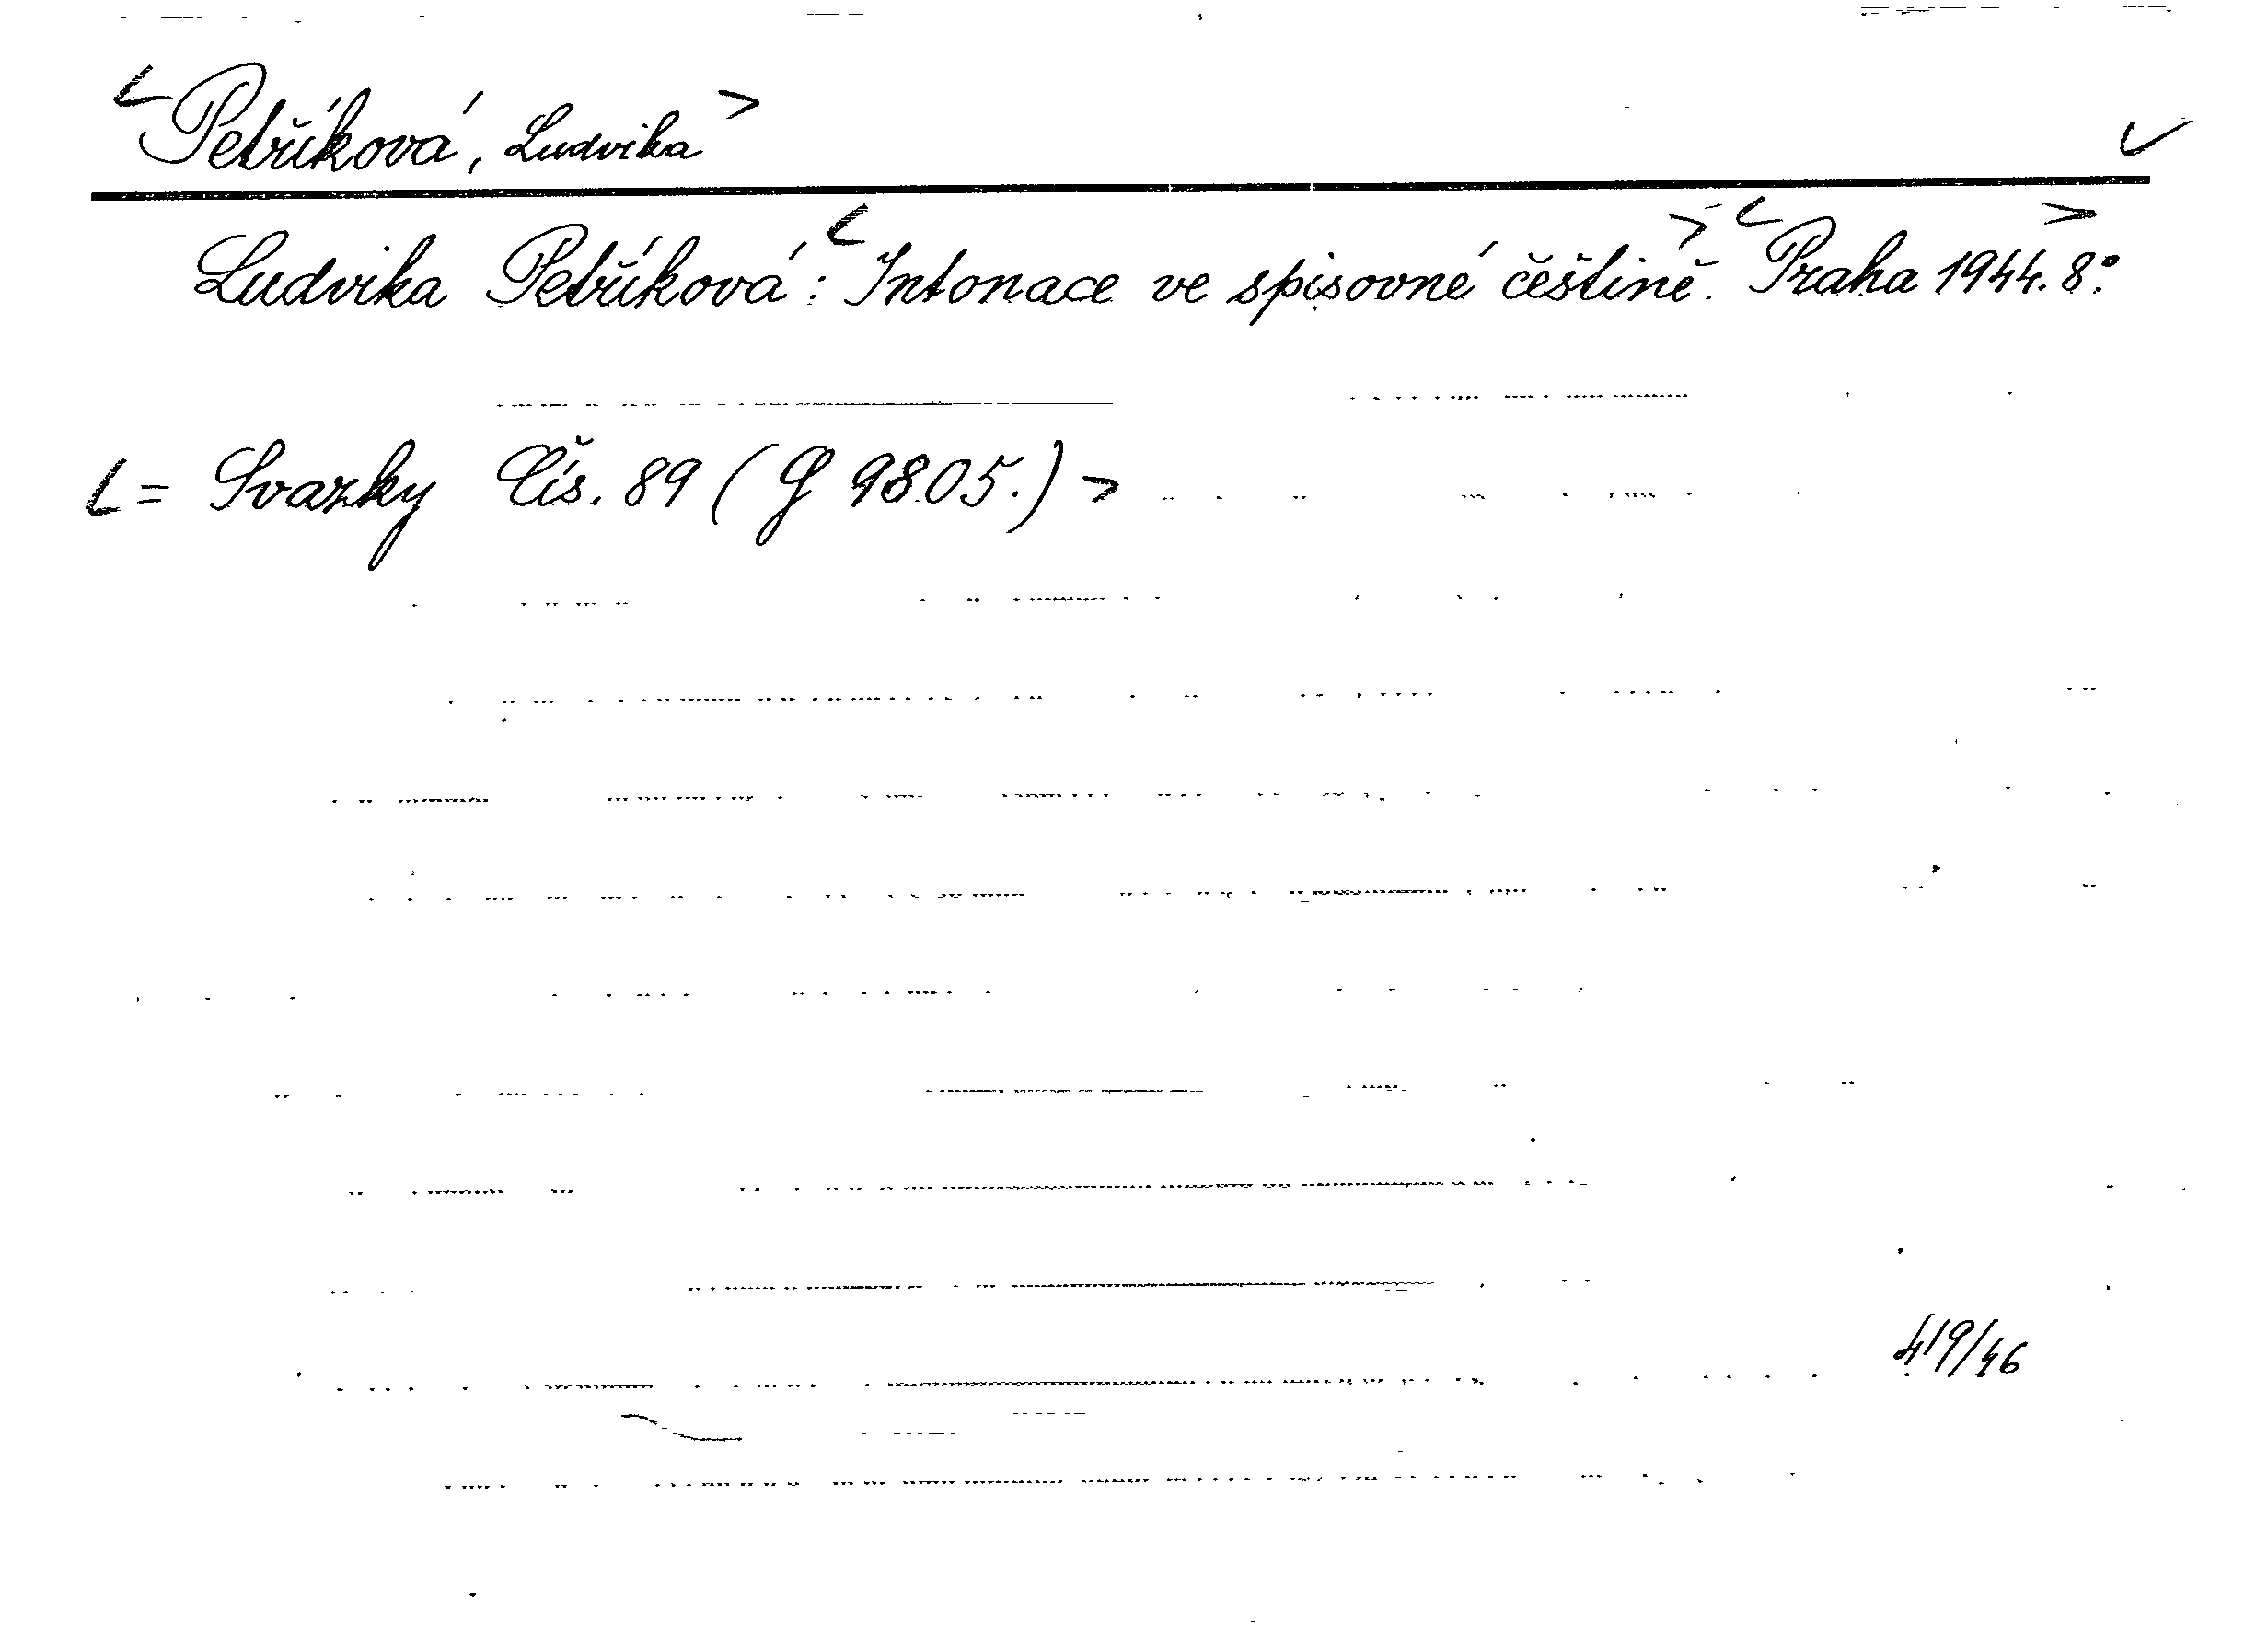 <Petříková, Ludvika>
Ludvika Petříková: <Intonace ve spisovné češtině.> <Praha 1944. 8°.>
<= Svazky Čís. 89 (G 9805.)>
419/46